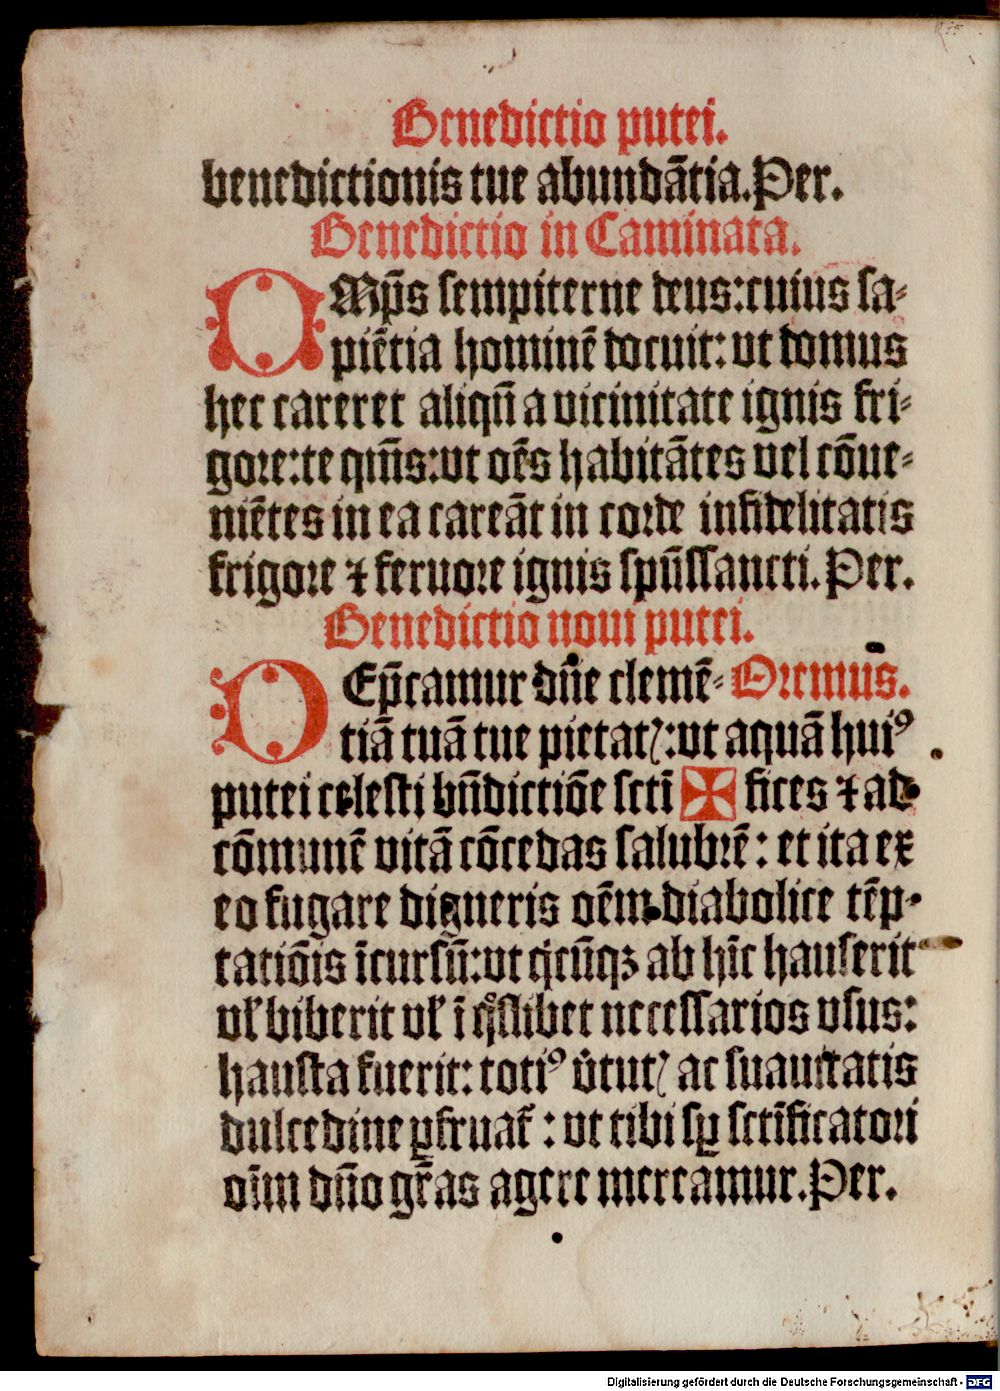 Benedictio putei.
benedictionis tue abundātia. Per.
Benedictio in Caminata.
OMp̄s sempiterne deus: cuius sa-
piētia hominē docuit: ut domus
hec careret aliqn̄ a vicinitate ignis fri-
gore: te qm̄s: ut oēs habitātes vel cōue-
niētes in ea careāt in corde infidelitatis
frigore ⁊ feruore ignis spūssancti. Per.
Benedictio noui putei.
DEp̄camur dn̄e clemē- Oremus.
tiā tuā tue pietatꝭ: ut aquā huiꝰ
putei celesti bn̄dictiōe sctī ✠ fices ⁊ ad
cōmunē vitā cōcedas salubrē: et ita ex
eo fugare digneris oēm diabolice tēp-
tatiōis īcursū: ut qͥcūqꝫ ab hīc hauserit
vl̛ biberit vl̛ ī qͥslibet necessarios vsus:
hausta fuerit: totiꝰ v̛tutꝭ ac suauitatis
dulcedine ꝑfruat̛: ut tibi sꝑ sctīficatori
oīm dn̄o gr̄as agere mereamur. Per.
Digitalisierung gefördert durch die Deutsche Forschungsgemeinschaft - DFG